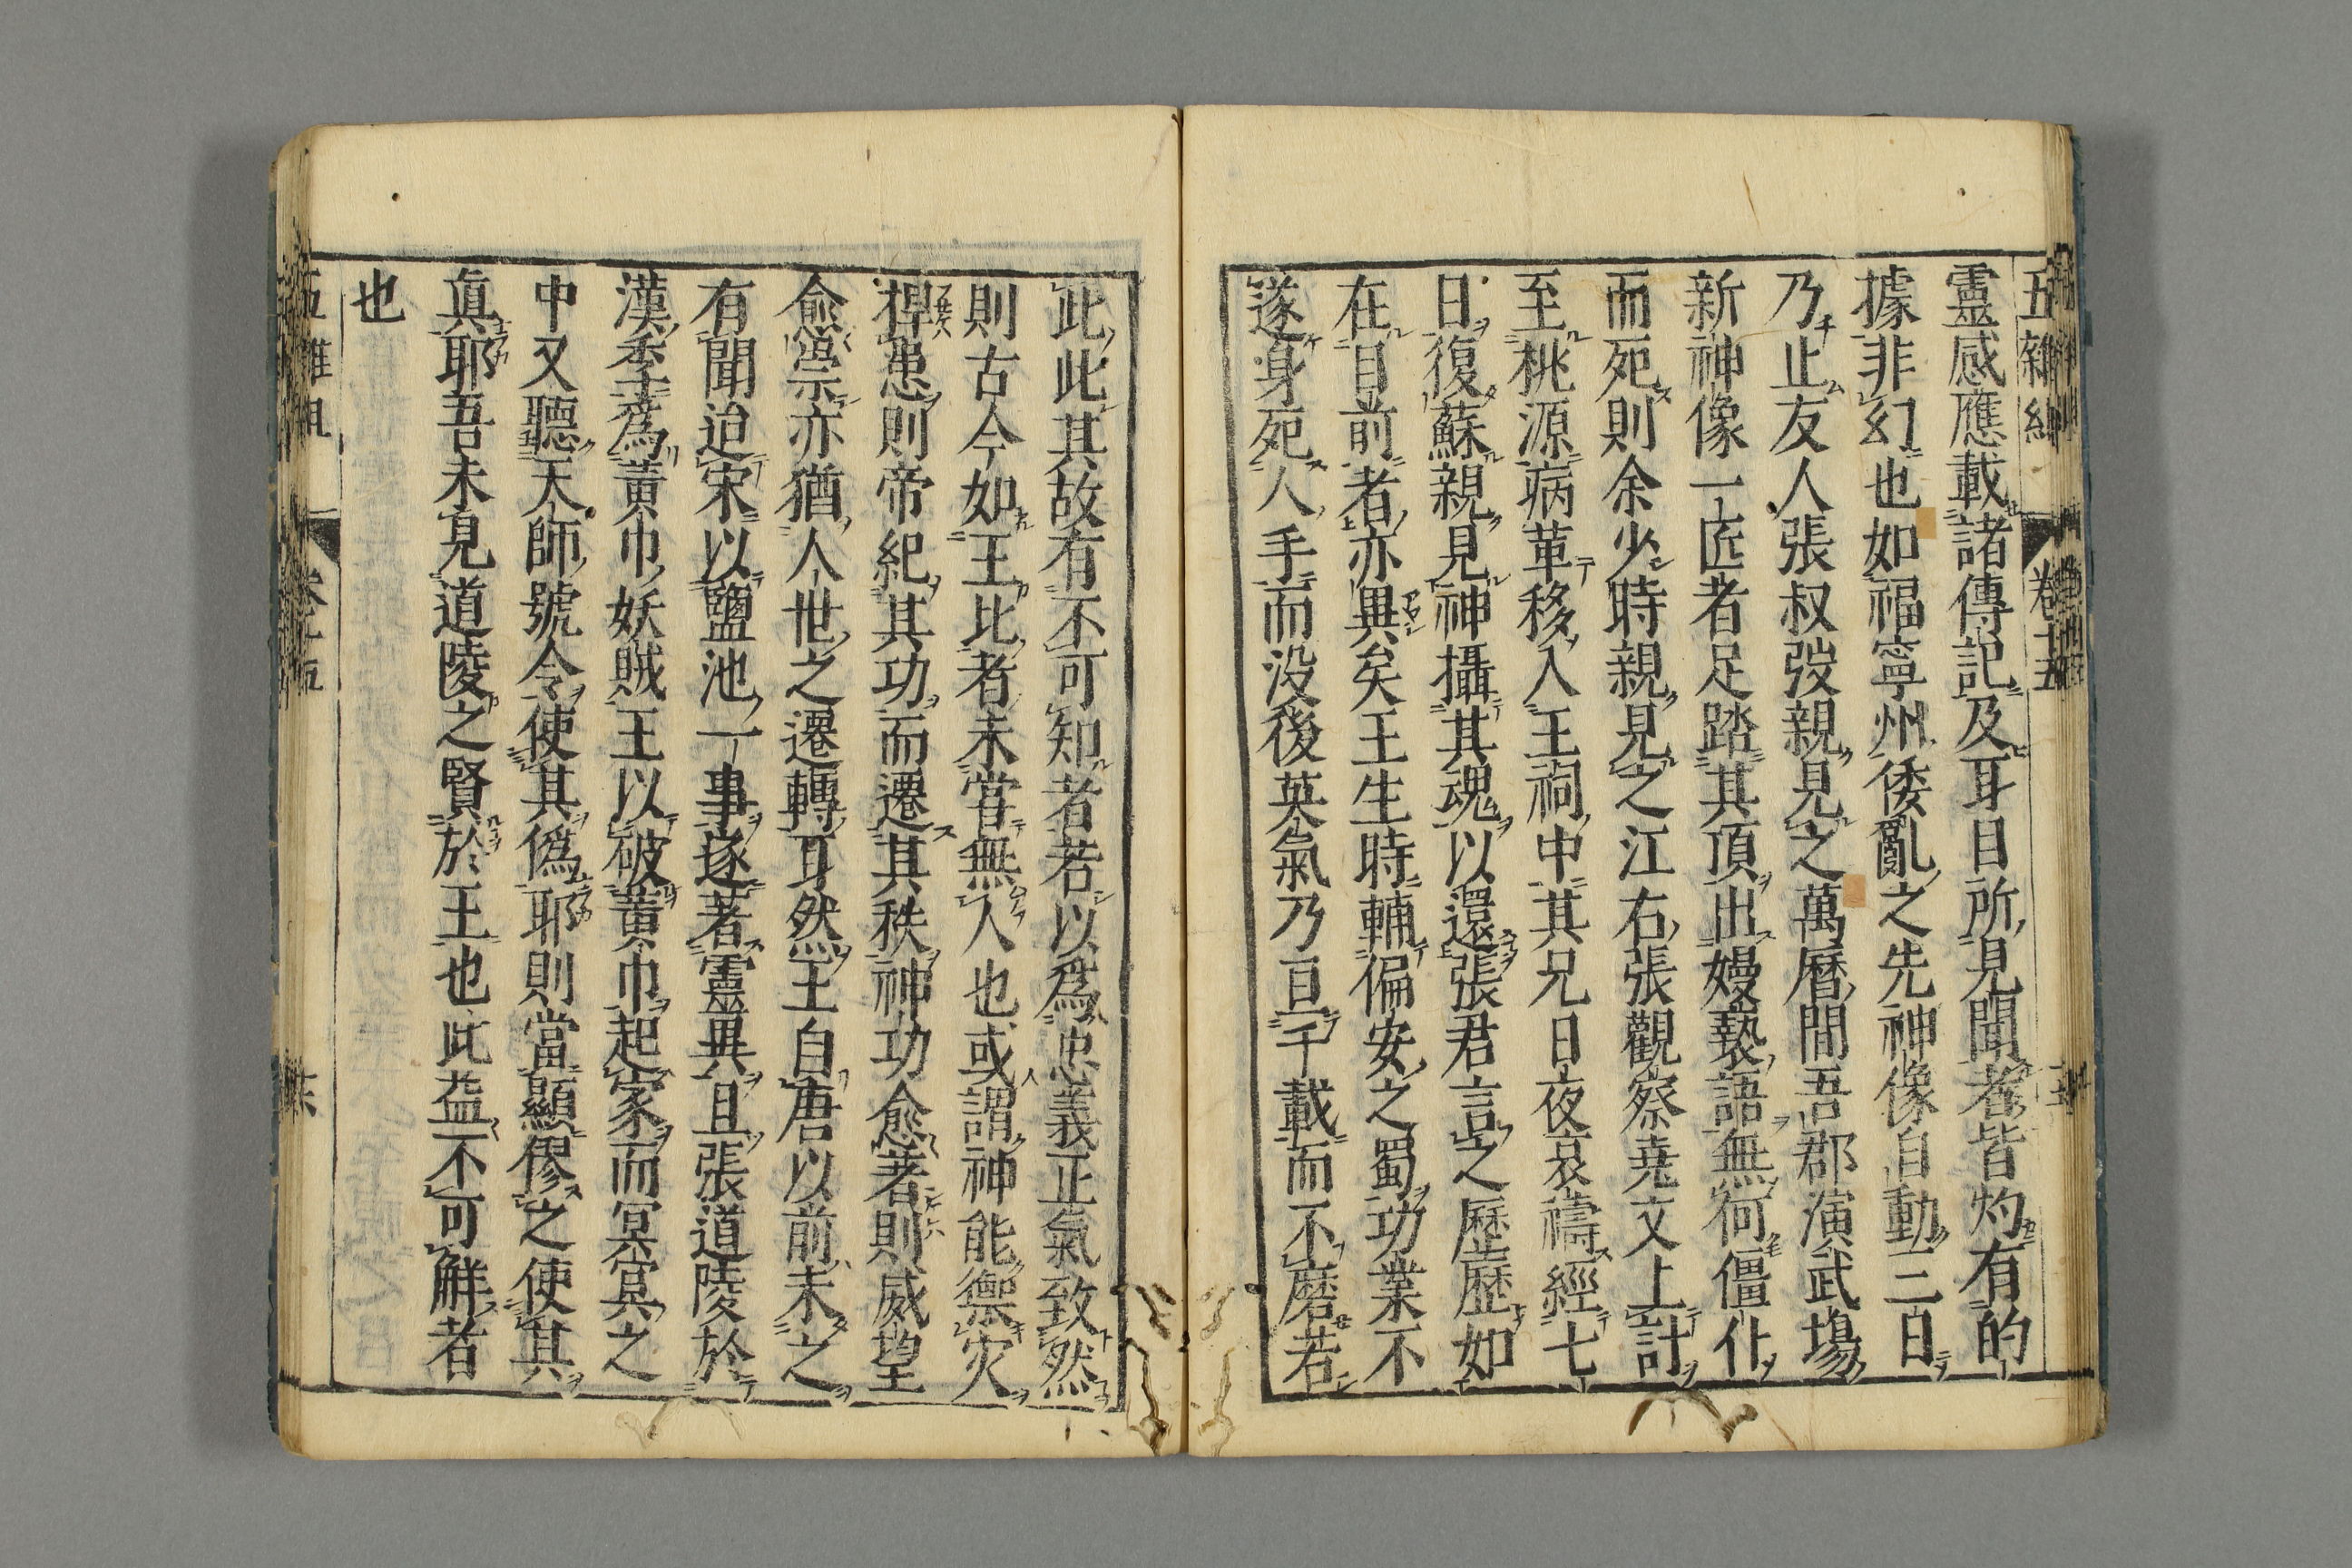 五雜組 卷十五
靈感應載諸傳記及耳目所見聞者皆灼有的
據非幻也如福寧州倭亂之先神像自動三日
乃止友人張叔弢親見之萬曆間吾郡演武場
新神像一匠者足踏其頂出嫚褻語無何僵仆
而死則余少時親見之江右張觀察堯文上計
至桃源病革移入王祠中其兄日夜哀禱經七
日復蘇親見神攝其魂以還張君言之歷歷如
在目前者亦異矣王生時輔偏安之蜀功業不
遂身死人手而没後英氣乃亘千載而不磨若
此此其故有不可知者若以爲忠義正氣致然
則古今如王比者未嘗無人也或謂神能禦灾
捍患則帝紀其功而遷其秩神功愈著則威望
愈崇亦猶人世之遷轉耳然王自唐以前未之
有聞迨宋以鹽池一事遂著靈異且張道陵於
漢季爲黃巾妖賊王以破黃巾起家而冥冥之
中又聽天師號令使其僞耶則當顯僇之使其
眞耶吾未見道陵之賢於王也此益不可觧者
也
五雜組